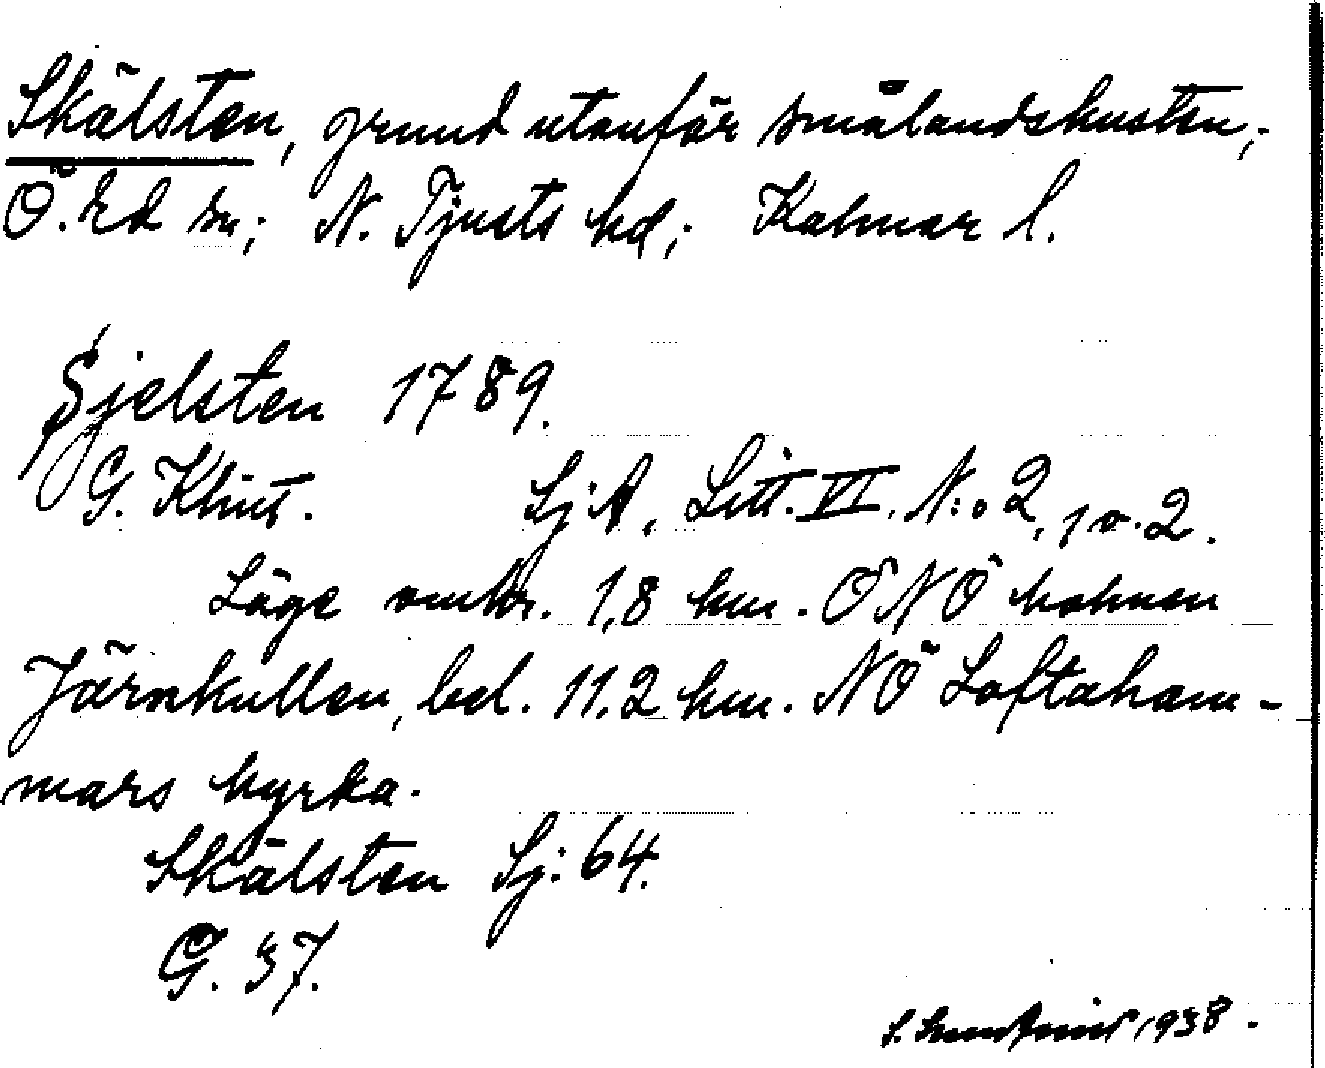 Skälsten, grund utanför smålandskusten;
Ö. Ed sn; N. Tjusts hd; Kalmar l.
Sjelsten 1789.
G. Klint. SjA, Litt. VI. N:o 2, 1 o. 2.
Läge omkr. 1,8 km. ÖNÖ holmen
Järnkullen, bel. 11.2 km. NÖ Loftaham-
mars kyrka.
Skälsten Sj: 64.
G. 37.
S. 1938.